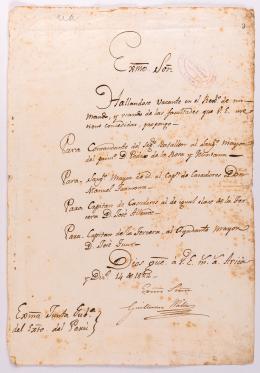 Exmo Sōr.
Hallandose vacante en el Regto. de mi
mando, y usando de las facultades que V.E. me
tiene concedidas, propongo
Para Comandante del Segdo. Batallon al Sargto. mayor
del primo. D. Pedro de la Rosa y
Para Sargto. Mayor al Capn. de Cazadores Don
Manuel
Para Capitan de Cazadores al de igual clase de la ter
cera D. José
Para Capitan de la tercera, al Ayudante mayor
D. José
Dios gue. a V.E. m. a. Arica
y Dice. 14 de 1822
Exmo Señor
Guillermo
Exma Junta Guba.
del Estdo. del Perú